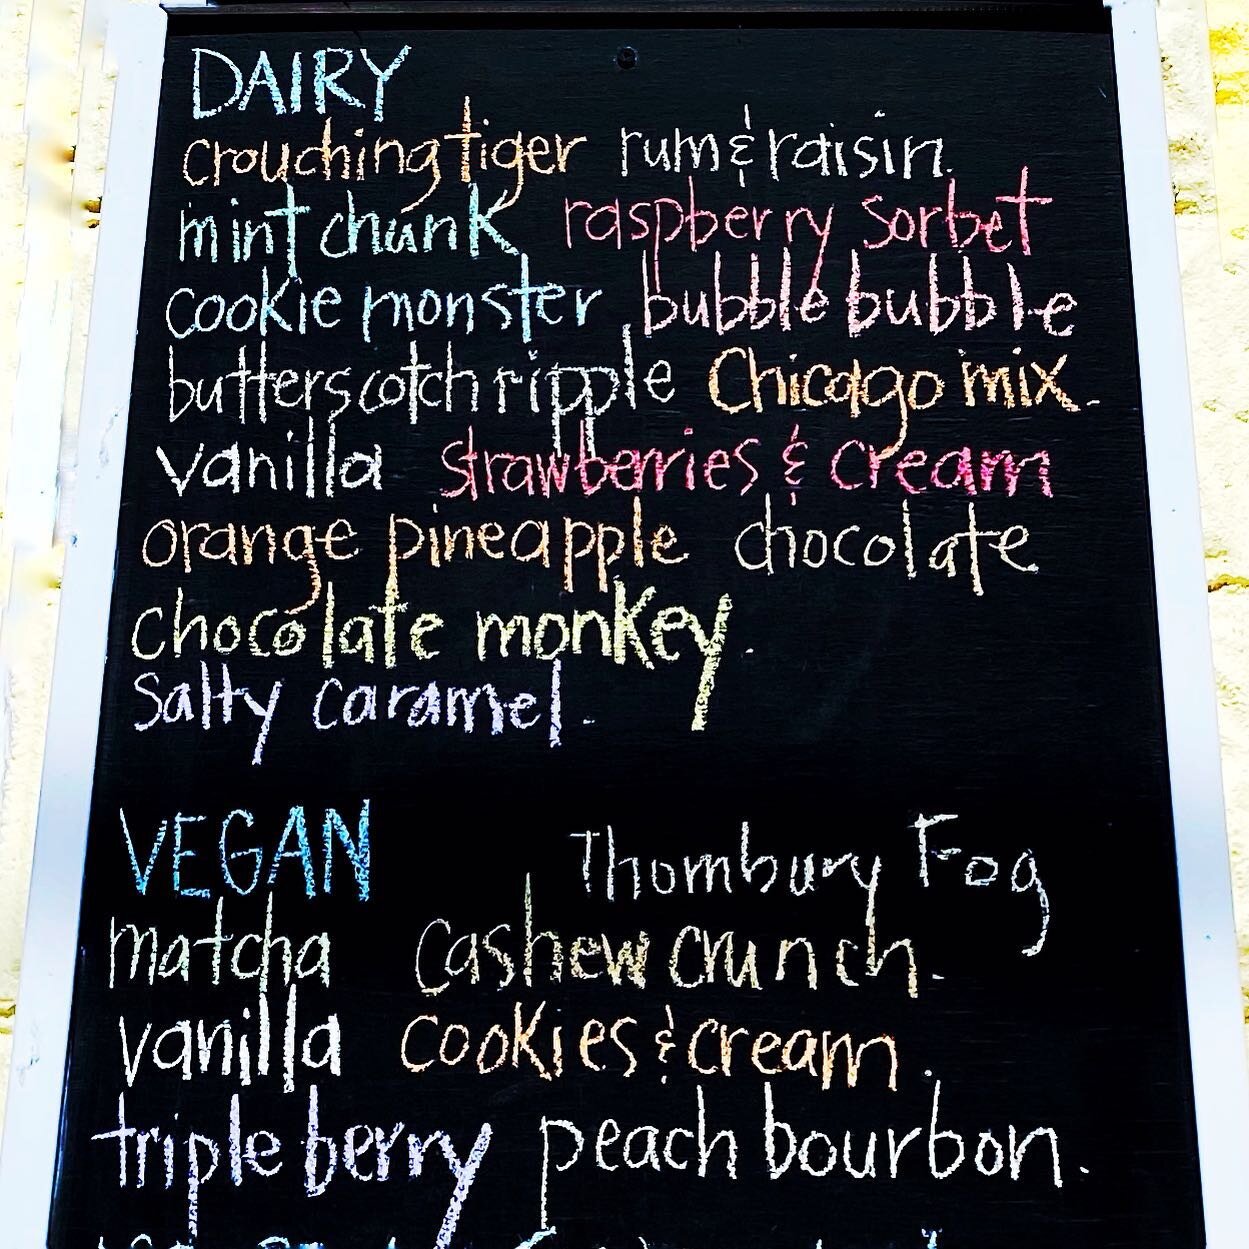 DAIRY
crouching tiger rum & raisin.
mint chunk raspberry sorbet
cookie monster bubble bubble
butterscotch ripple Chicago mix.
vanilla strawberries & cream
orange pineapple chocolate
chocolate monkey.
Salty caramel.
VEGAN Thornbury Fog
matcha Cashew crunch.
vanilla cookies & cream.
triple berry peach bourbon.